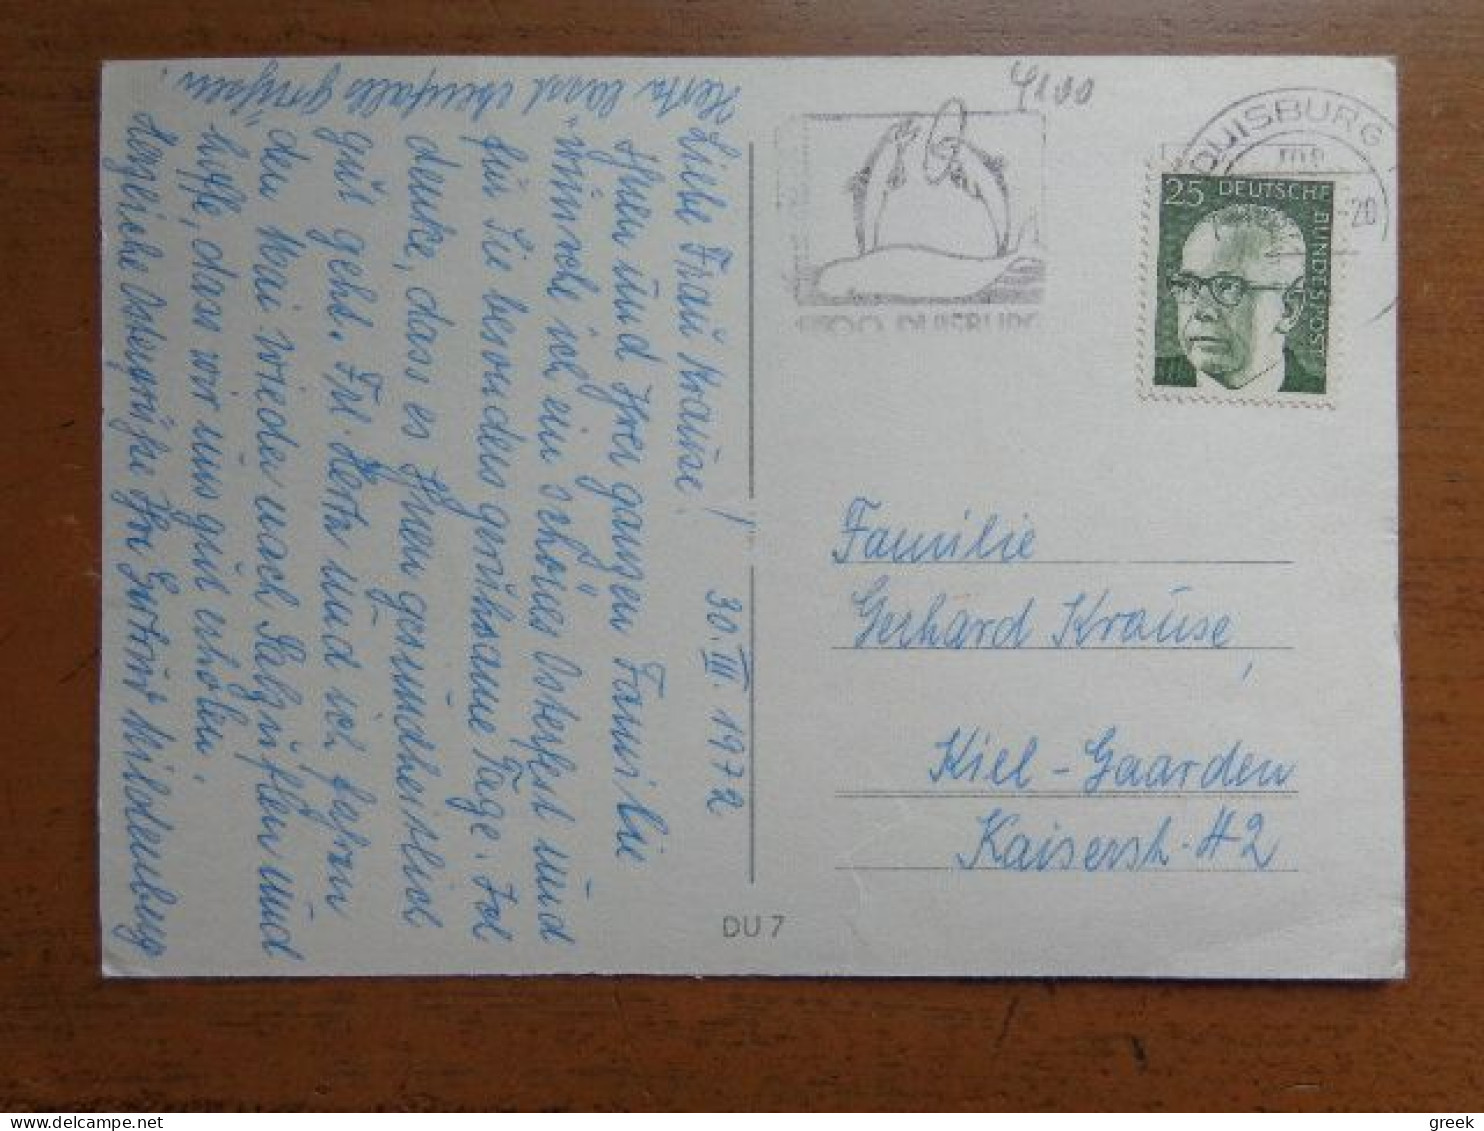 30. III. 1972
Liebe Frau Krause!
Ihnen und Ihrer ganzen Familie
wünsche ich ein schönes Osterfest und
für Sie besonders geruhsame Tage. Ich
denke, dass es Ihnen gesundheitlich
gut geht. Frl. Herta und ich fahren
den Mai wieder nach Salzuflen und
hoffe, dass wir uns gut erholen.
Herzliche Ostergrüße Ihre Gertrud Hildenburg
Herta lässt ebenfalls grüssen!
DU 7
4100
4100 DUISBURG
DUISBURG
-20
25 DEUTSCHE BUNDESPOST
Familie
Gerhard Krause,
Kiel-Gaarden
Kaiserstr. 42